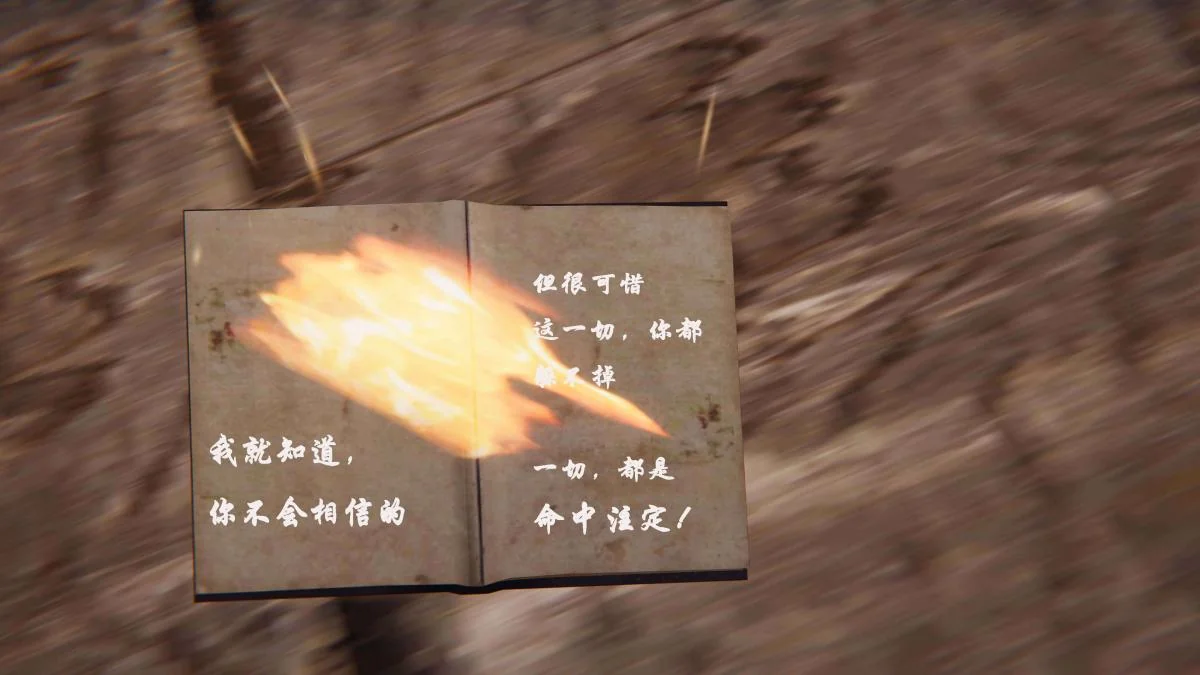 我就知道，
你不会相信的
但很可惜
这一切，你都
躲不掉
一切，都是
命中注定！